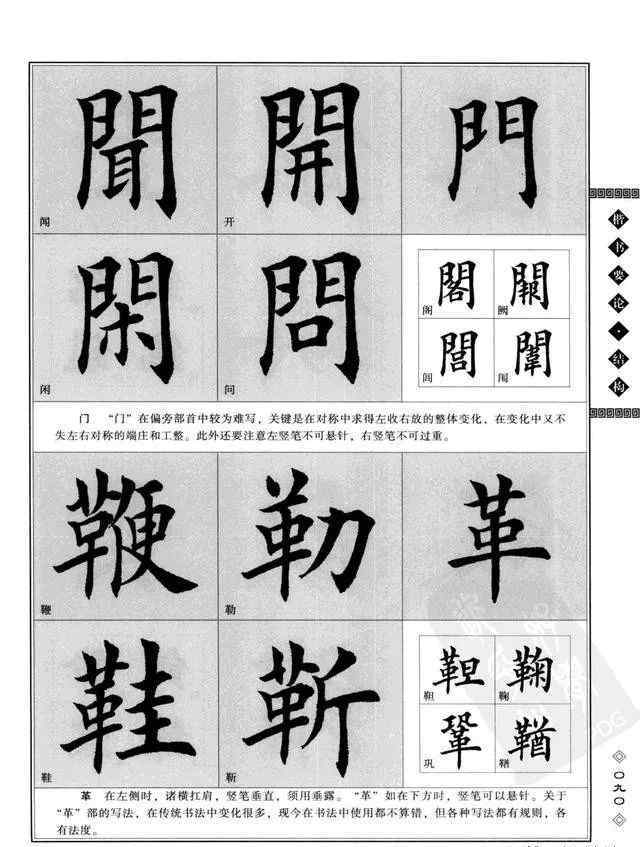 聞 開 門
闻 开
閑 問 閣 闕
闲 问 阁 阙
閭 闈
闱
门 “门”在偏旁部首中较为难写，关键是在对称中求得左收右放的整体变化，在变化中又不
失左右对称的端庄和工整。此外还要注意左竖笔不可悬针，右竖笔不可过重。
鞭 勒 革
鞭 勒
鞋 靳 靼 鞠
鞋 靳 靼 鞠
鞏
巩
革 在左侧时，诸横扛肩，竖笔垂直，须用垂露。“革”如在下方时，竖笔可以悬针。关于
“革”部的写法，在传统书法中变化很多，现今在书法中使用都不算错，但各种写法都有规则，各
有法度。
楷书要论·结构
〇九〇